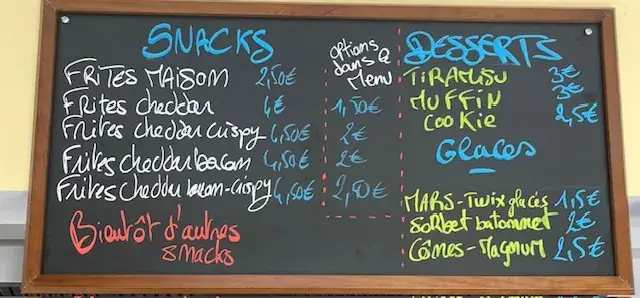 SNACKS
options dans le Menu
FRITES MAISON 2,50€
Frites cheddar 4€ 1,50€
Frites cheddar crispy 4,50€ 2€
Frites cheddar bacon 4,50€ 2€
Frites cheddar bacon-crispy 4,50€ 2,50€
Bientôt d'autres
snacks
DESSERTS
TIRAMISU 3€
MUFFIN 3€
COOKIE 2,5€
Glaces
MARS-Twix glacés 1,5€
Sorbet batonnet 2€
Cônes-Magnum 2,5€